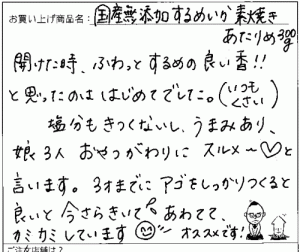 お買い上げ商品名: 国産無添加するめいか素焼き
あたりめ300g
開けた時、ふわっとするめの良い香!!
と思ったのははじめてでした。(いつもくさい)
塩分もきつくないし、うまみあり、
娘3人おやつがわりにスルメ〜♡と
言います。3才までにアゴをしっかりつくると
良いと今さらきいて あわてて、
カミカミしています オススメです!
ご注文店舗は?